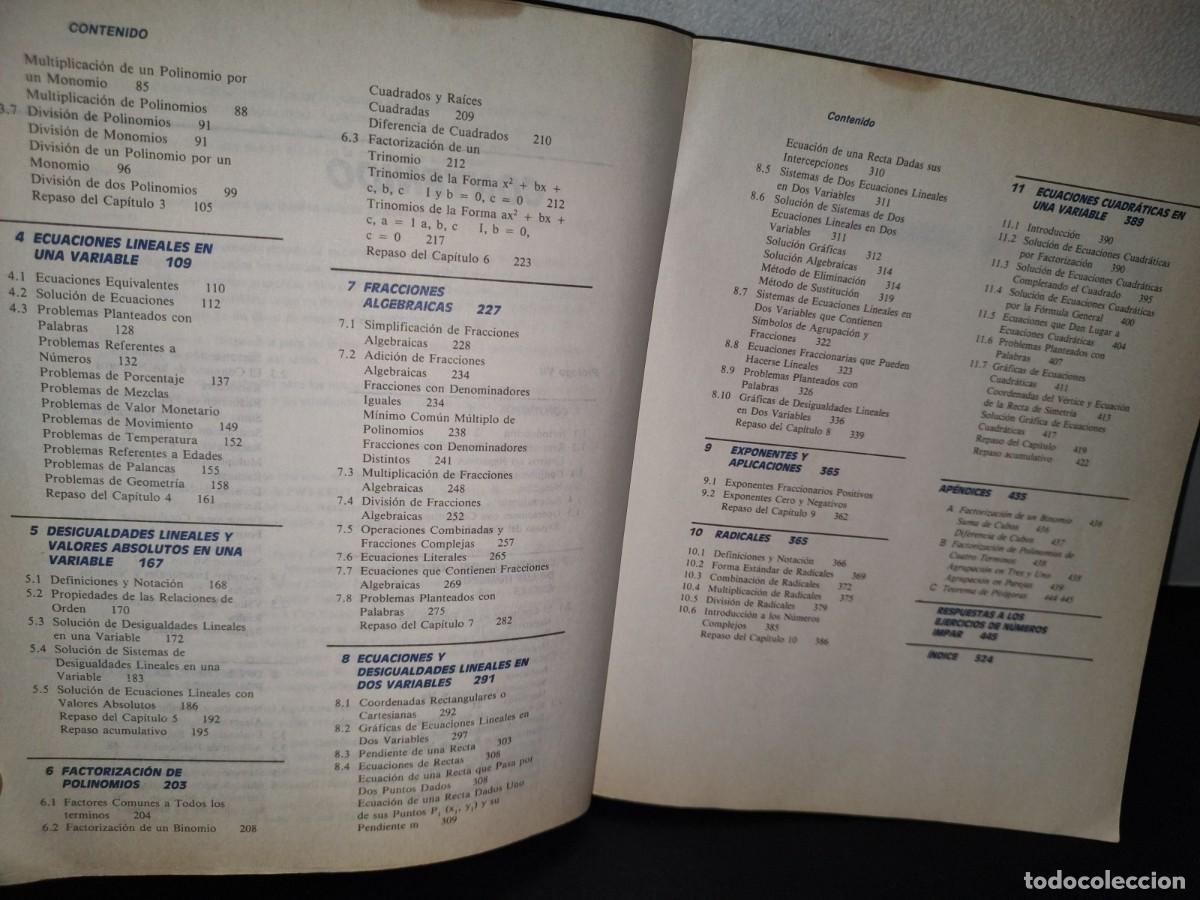 CONTENIDO
Multiplicación de un Polinomio por
un Monomio 85
Multiplicación de Polinomios 88
3.7 División de Polinomios 91
División de Monomios 91
División de un Polinomio por un
Monomio 96
División de dos Polinomios 99
Repaso del Capítulo 3 105
4 ECUACIONES LINEALES EN
UNA VARIABLE 109
4.1 Ecuaciones Equivalentes 110
4.2 Solución de Ecuaciones 112
4.3 Problemas Planteados con
Palabras 128
Problemas Referentes a
Números 132
Problemas de Porcentaje 137
Problemas de Mezclas
Problemas de Valor Monetario
Problemas de Movimiento 149
Problemas de Temperatura 152
Problemas Referentes a Edades
Problemas de Palancas 155
Problemas de Geometría 158
Repaso del Capítulo 4 161
5 DESIGUALDADES LINEALES Y
VALORES ABSOLUTOS EN UNA
VARIABLE 167
5.1 Definiciones y Notación 168
5.2 Propiedades de las Relaciones de
Orden 170
5.3 Solución de Desigualdades Lineales
en una Variable 172
5.4 Solución de Sistemas de
Desigualdades Lineales en una
Variable 183
5.5 Solución de Ecuaciones Lineales con
Valores Absolutos 186
Repaso del Capítulo 5 192
Repaso acumulativo 195
6 FACTORIZACIÓN DE
POLINOMIOS 203
6.1 Factores Comunes a Todos los
terminos 204
6.2 Factorización de un Binomio 208
Cuadrados y Raíces
Cuadradas 209
Diferencia de Cuadrados 210
6.3 Factorización de un
Trinomio 212
Trinomios de la Forma x² + bx +
c, b, c I y b = 0, c = 0 212
Trinomios de la Forma ax² + bx +
c, a = 1 a, b, c I, b = 0,
c = 0 217
Repaso del Capítulo 6 223
7 FRACCIONES
ALGEBRAICAS 227
7.1 Simplificación de Fracciones
Algebraicas 228
7.2 Adición de Fracciones
Algebraicas 234
Fracciones con Denominadores
Iguales 234
Mínimo Común Múltiplo de
Polinomios 238
Fracciones con Denominadores
Distintos 241
7.3 Multiplicación de Fracciones
Algebraicas 248
7.4 División de Fracciones
Algebraicas 252
7.5 Operaciones Combinadas y
Fracciones Complejas 257
7.6 Ecuaciones Literales 265
7.7 Ecuaciones que Contienen Fracciones
Algebraicas 269
7.8 Problemas Planteados con
Palabras 275
Repaso del Capítulo 7 282
8 ECUACIONES Y
DESIGUALDADES LINEALES EN
DOS VARIABLES 291
8.1 Coordenadas Rectangulares o
Cartesianas 292
8.2 Gráficas de Ecuaciones Lineales en
Dos Variables 297
8.3 Pendiente de una Recta 303
8.4 Ecuaciones de Rectas 308
Ecuación de una Recta que Pasa por
Dos Puntos Dados 308
Ecuación de una Recta Dados Uno
de sus Puntos P₁ (x₁, y₁) y su
Pendiente m 309
Contenido
Ecuación de una Recta Dadas sus
Intercepciones 310
8.5 Sistemas de Dos Ecuaciones Lineales
en Dos Variables 311
8.6 Solución de Sistemas de Dos
Ecuaciones Lineales en Dos
Variables 311
Solución Gráficas 312
Solución Algebraicas 314
Método de Eliminación 314
Método de Sustitución 319
8.7 Sistemas de Ecuaciones Lineales en
Dos Variables que Contienen
Símbolos de Agrupación y
Fracciones 322
8.8 Ecuaciones Fraccionarias que Pueden
Hacerse Lineales 323
8.9 Problemas Planteados con
Palabras 326
8.10 Gráficas de Desigualdades Lineales
en Dos Variables 336
Repaso del Capítulo 8 339
9 EXPONENTES Y
APLICACIONES 365
9.1 Exponentes Fraccionarios Positivos
9.2 Exponentes Cero y Negativos
Repaso del Capítulo 9 362
10 RADICALES 365
10.1 Definiciones y Notación 366
10.2 Forma Estándar de Radicales 369
10.3 Combinación de Radicales 372
10.4 Multiplicación de Radicales 375
10.5 División de Radicales 379
10.6 Introducción a los Números
Complejos 385
Repaso del Capítulo 10 386
11 ECUACIONES CUADRÁTICAS EN
UNA VARIABLE 389
11.1 Introducción 390
11.2 Solución de Ecuaciones Cuadráticas
por Factorización 390
11.3 Solución de Ecuaciones Cuadráticas
Completando el Cuadrado 395
11.4 Solución de Ecuaciones Cuadráticas
por la Fórmula General 400
11.5 Ecuaciones que Dan Lugar a
Ecuaciones Cuadráticas 404
11.6 Problemas Planteados con
Palabras 407
11.7 Gráficas de Ecuaciones
Cuadráticas 411
Coordenadas del Vértice y Ecuación
de la Recta de Simetría 413
Solución Gráfica de Ecuaciones
Cuadráticas 417
Repaso del Capítulo 419
Repaso acumulativo 422
APÉNDICES 435
A Factorización de un Binomio 436
Suma de Cubos 436
Diferencia de Cubos 437
B Factorización de Polinomios de
Cuatro Terminos 438
Agrupación en Tres y Uno 438
Agrupación en Parejas 439
C Teorema de Pitágoras 444-445
RESPUESTAS A LOS
EJERCICIOS DE NÚMEROS
IMPAR 445
ÍNDICE 524
todocoleccion